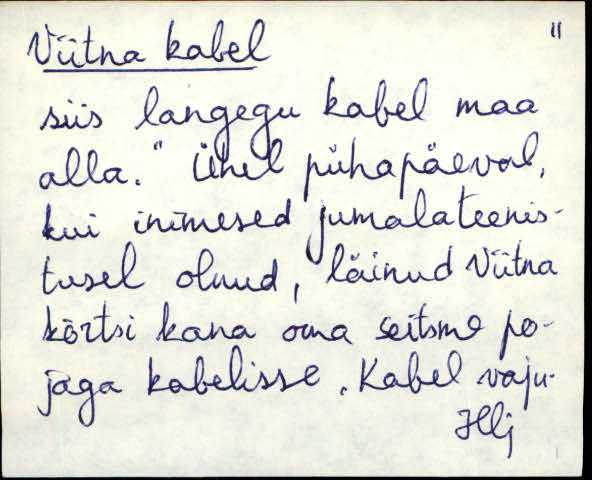 Viitna kabel
II
siis langegu kabel maa
alla." Ühel pühapäeval,
kui inimesed jumalateenis-
tusel olnud, läinud Viitna
kõrtsi kana oma seitsme po-
jaga kabelisse. Kabel vaju-
Hlj